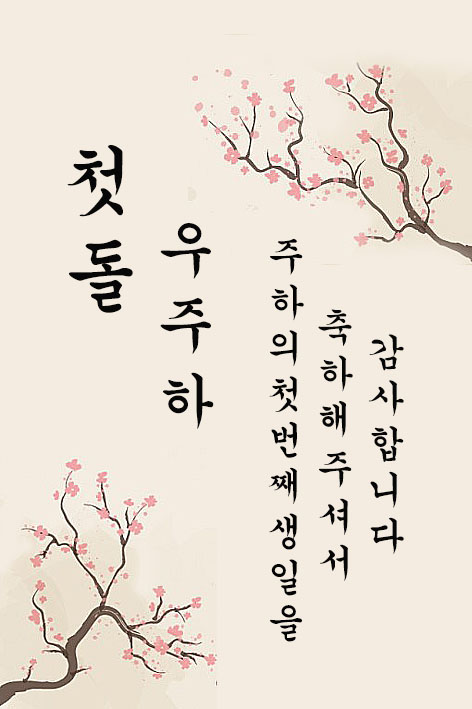 첫돌
우주하
주하의첫번째생일을
축하해주셔서
감사합니다